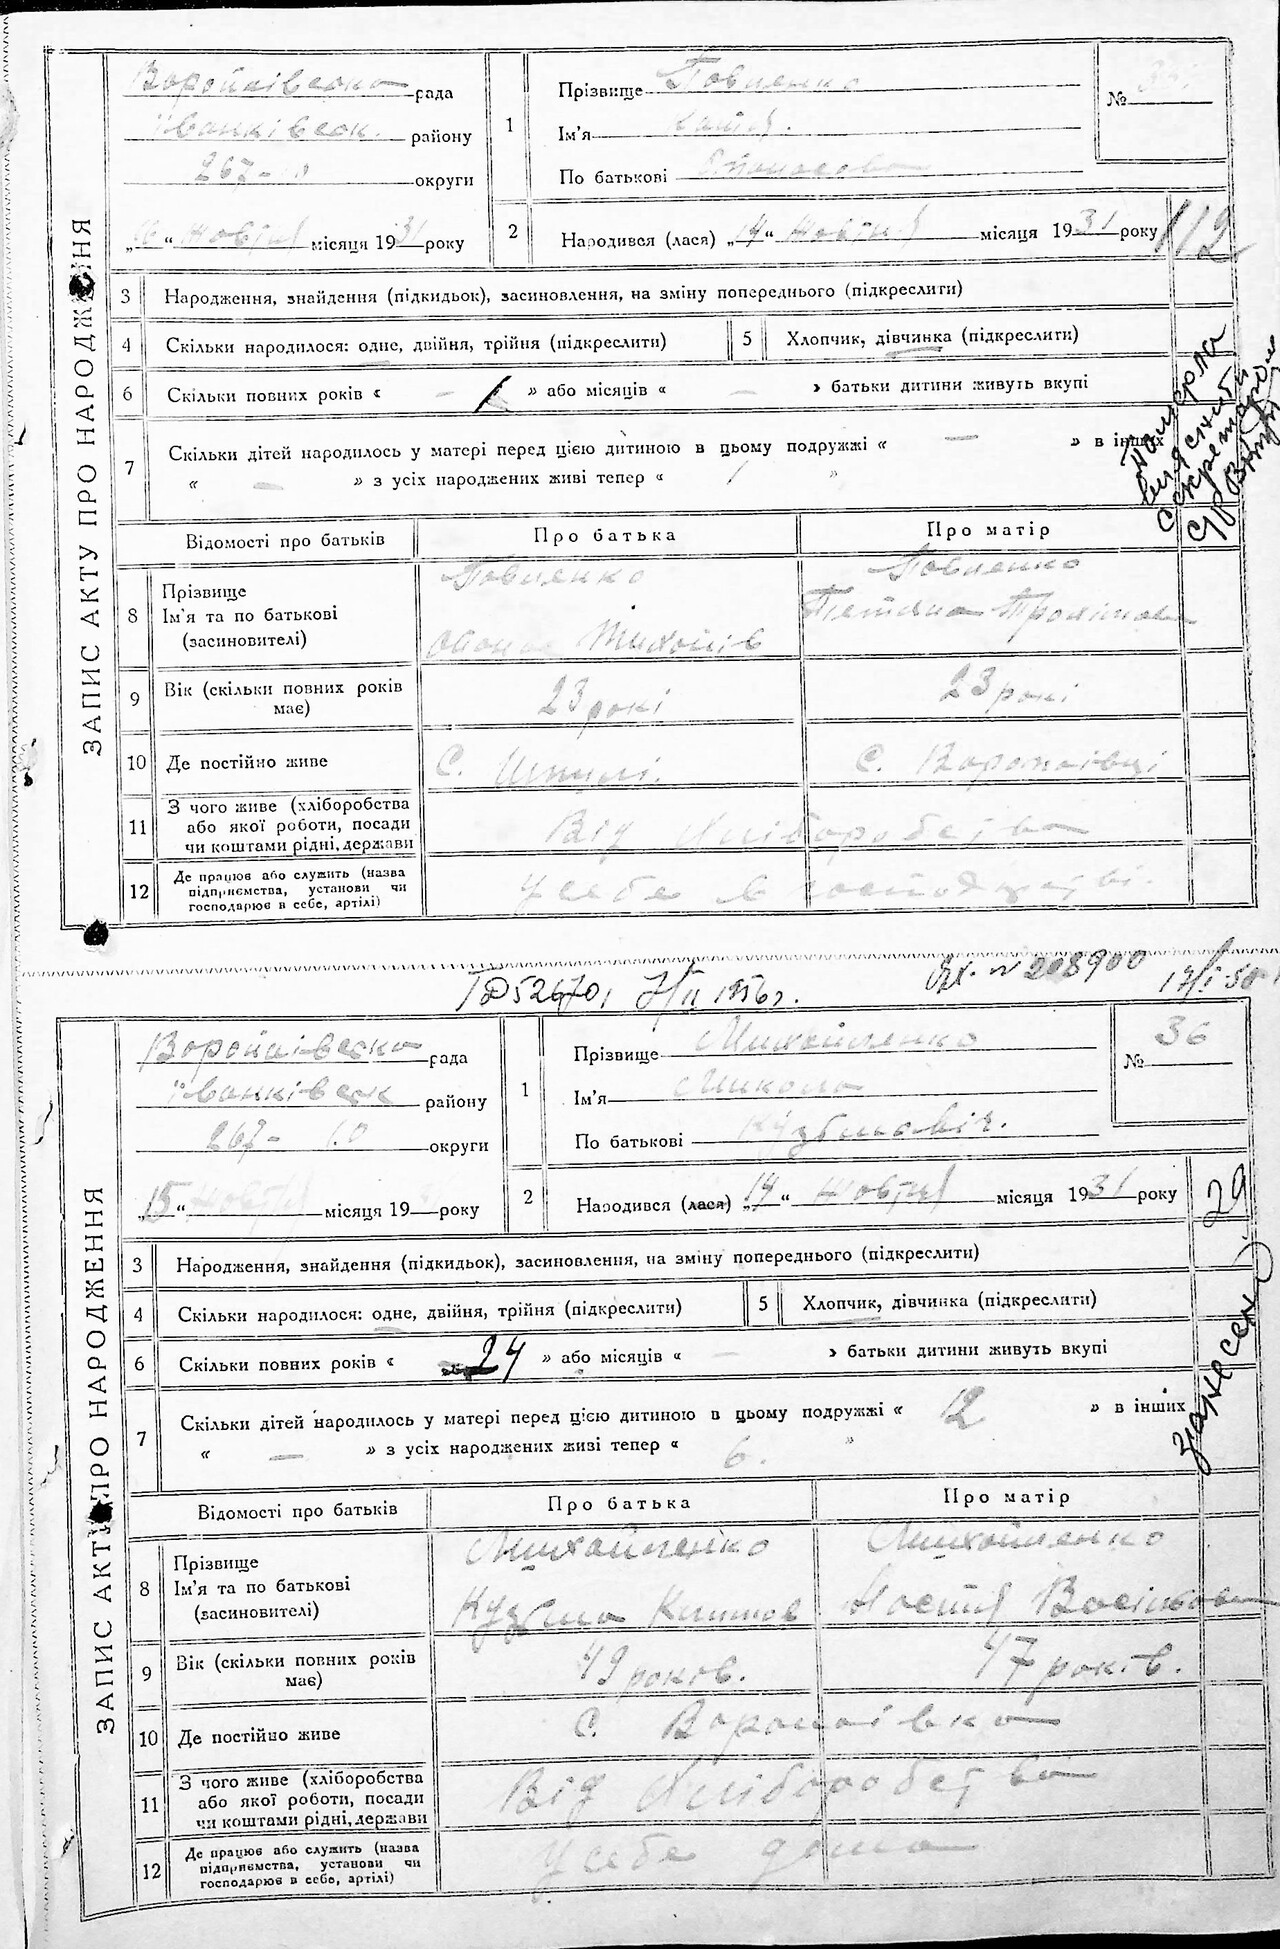 ЗАПИС АКТУ ПРО НАРОДЖЕННЯ
Воропаівська рада
Іванківськ. району
267- округи
„16“ Жовтня місяця 1931 року
1
Прізвище Повпенко
Ім'я Катя.
По батькові
№
2
Народився (лася) „14“ Жовтня місяця 1931 року
112
3 Народження, знайдення (підкидьок), засиновлення, на зміну попереднього (підкреслити)
4 Скільки народилося: одне, двійня, трійня (підкреслити)
5 Хлопчик, дівчинка (підкреслити)
6 Скільки повних років « — 1 » або місяців « — » батьки дитини живуть вкупі
7 Скільки дітей народилось у матері перед цією дитиною в цьому подружжі « — » в інших
« — » з усіх народжених живі тепер « / »
Померла
секретар
Відомості про батьків
Про батька
Про матір
8 Прізвище
Ім'я та по батькові
(засиновителі)
Повпенко
Повпенко
Тетяна
9 Вік (скільки повних років
має)
23 рокі
23 рокі
10 Де постійно живе
С.
С. Воропаівці
11 З чого живе (хліборобства
або якої роботи, посади
чи коштами рідні, держави
Від хліборобства
12 Де працює або служить (назва
підприємства, установи чи
господарює в себе, артілі)
У себе в господарстві.
52670, 7/II 1956 г.
№ 208900 17/I-50
ЗАПИС АКТУ ПРО НАРОДЖЕННЯ
Воропаівска рада
Іванківськ району
267- округи
„15“ Жовтня місяця 19 року
1
Прізвище Михайленко
Ім'я Микола
По батькові Кузьмовіч.
№ 36
2
Народився (лася) „14“ Жовтня місяця 1931 року
29
занесен
3 Народження, знайдення (підкидьок), засиновлення, на зміну попереднього (підкреслити)
4 Скільки народилося: одне, двійня, трійня (підкреслити)
5 Хлопчик, дівчинка (підкреслити)
6 Скільки повних років « 24 » або місяців « — » батьки дитини живуть вкупі
7 Скільки дітей народилось у матері перед цією дитиною в цьому подружжі « 12 » в інших
« — » з усіх народжених живі тепер « 6. »
Відомості про батьків
Про батька
Про матір
8 Прізвище
Ім'я та по батькові
(засиновителі)
Михайленко
Кузьма Климов
Михайленко
Настя Васільовна
9 Вік (скільки повних років
має)
49 років.
47 років.
10 Де постійно живе
С. Воропаівка
11 З чого живе (хліборобства
або якої роботи, посади
чи коштами рідні, держави
Від хліборобства
12 Де працює або служить (назва
підприємства, установи чи
господарює в себе, артілі)
У себе дома